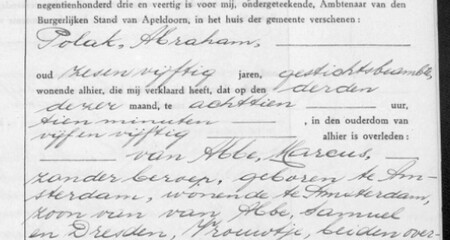 negentienhonderd drie en veertig is voor mij, ondergeteekende, Ambtenaar van den
Burgerlijken Stand van Apeldoorn, in het huis der gemeente verschenen:
Polak, Abraham,
oud zesenvijftig jaren, gestichtsbeambte,
wonende alhier, die mij verklaard heeft, dat op den derden
dezer maand, te achttien uur,
tien minuten , in den ouderdom van
vijfenvijftig alhier is overleden:
van Abbe, Marcus,
zonder beroep, geboren te Am-
sterdam, wonende te Amsterdam,
zoon van van Abbe, Samuel
en Dresden, Vrouwtje, beiden over-